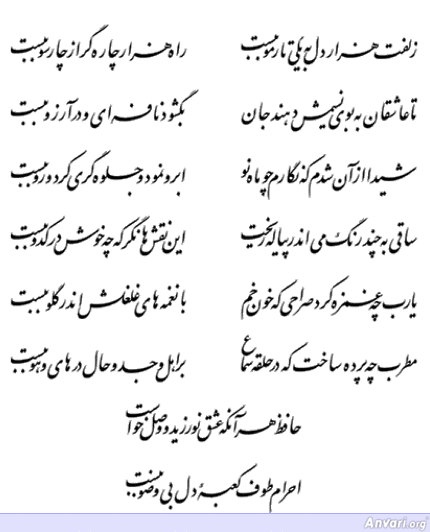 زلفت هزار دل به یکی تار مو ببست
راه هزار چاره گر از چار سو ببست
تا عاشقان به بوی نسیمش دهند جان
بگشود نافه ای و در آرزو ببست
شیدا از آن شدم که نگارم چو ماه نو
ابرو نمود و جلوه گری کرد و رو ببست
ساقی به چند رنگ می اندر پیاله ریخت
این نقشها نگر که چه خوش در کدو ببست
یارب چه غمزه کرد صراحی که خون خم
با نغمه های غلغلش اندر گلو ببست
مطرب چه پرده ساخت که در حلقه سماع
بر اهل وجد و حال در های و هو ببست
حافظ هر آنکه عشق نورزید و وصل خواست
احرام طوف کعبهٔ دل بی وضو ببست
Anvari.org